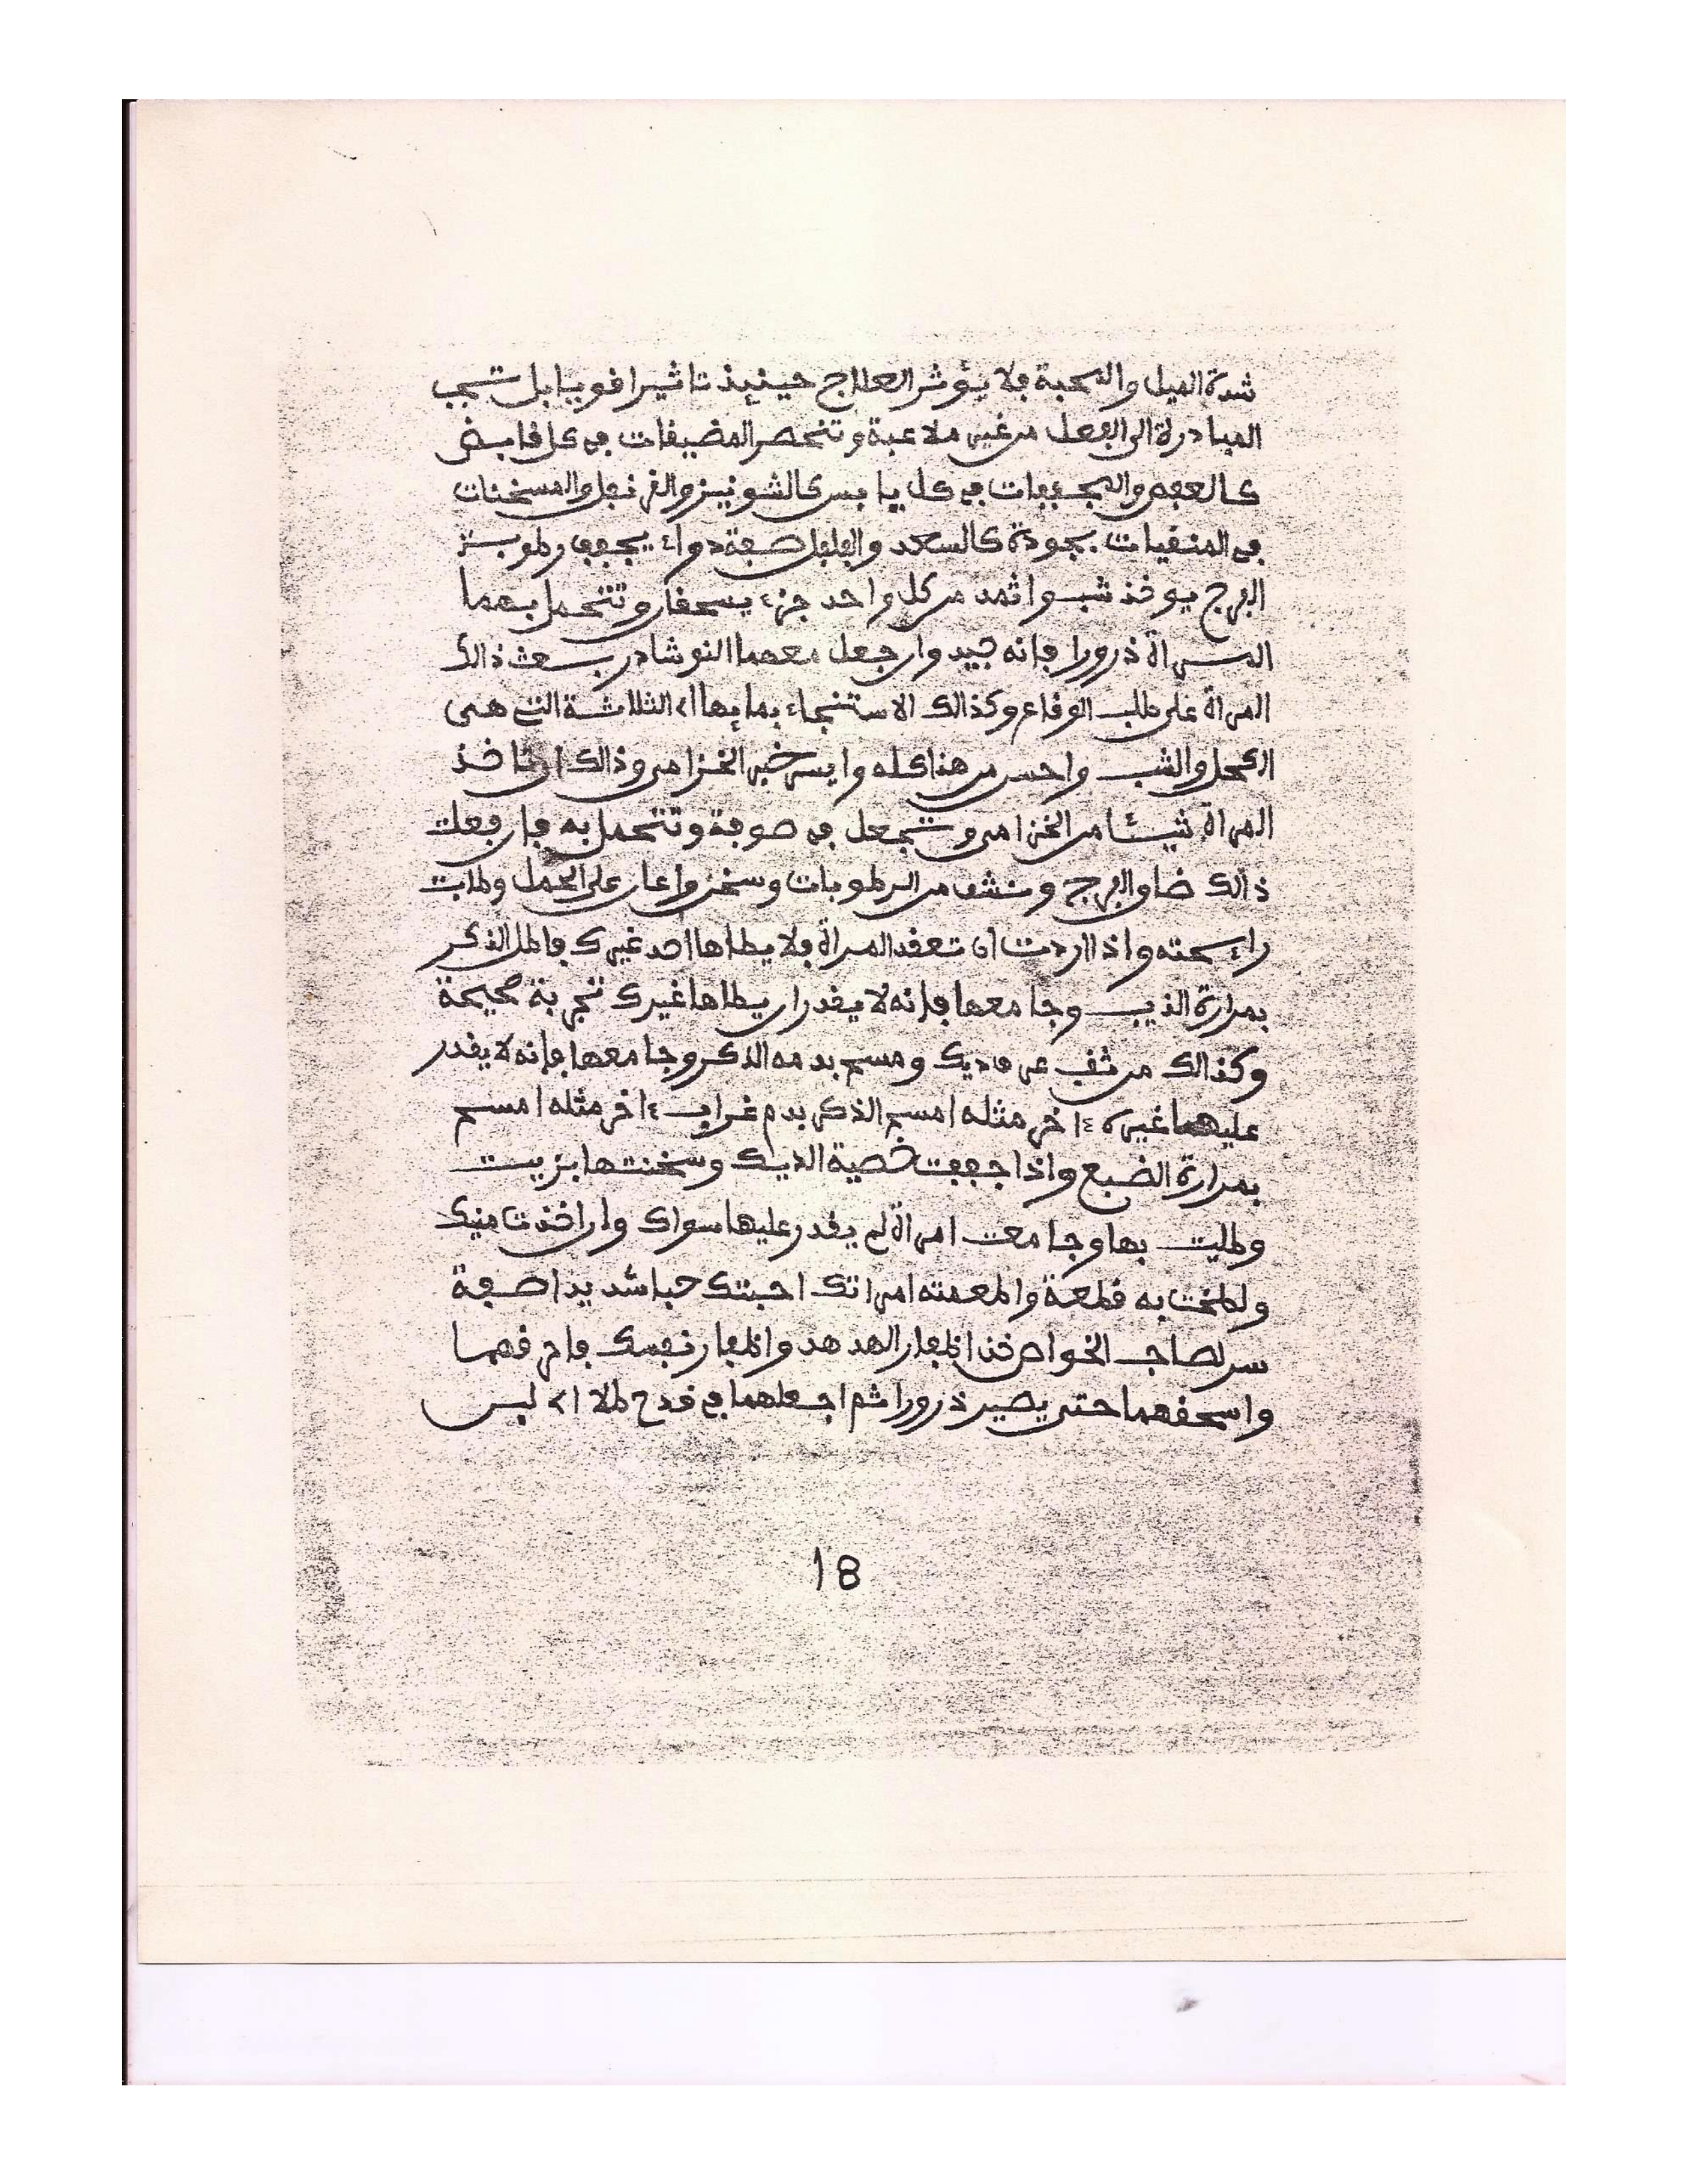 شدة الميل والمحبة فلا يؤثر العلاج حينيذ تاثيرا قويا بل تجب
المبادرة الى الفعل من غير ملاعبة وتنحصر المضيقات في كل قابض
كالعفص والمجففات في كل يابس كالشونيز والقرنفل والمسخنات
في المنقيات بجودة كالسعد والفلفل صفة دواء يجفف رطوبة
الفرج يوخذ شب واثمد من كل واحد جزء يسحقان وتتحمل بهما
المرأة ذرورا فإنه جيد وان جعل معهما النوشادر بعث ذالك
المرأة على طلب الوقاع وكذالك الاستنجاء بماء الثلاثة التي هي
الكحل والشب واحسن من هذا كله وايسر خبر الخزامى وذالك ان تاخذ
المرأة شيئا من الخزامى وتجعل في صوفة وتتحمل به فإن فعلت
ذالك ضاق الفرج ونشف من الرطوبات وسخن واعان على الحمل وطابت
رائحته واذا اردت ان تعقد المرأة فلا يطاها احد غيرك فاطل الذكر
بمرارة الذيب وجامعها فإنه لا يقدر ان يطاها غيرك تجربة صحيحة
وكذالك من ثقب عرف ديك ومسح بدمه الذكر وجامعها فإنه لا يقدر
عليها غيره ءاخر مثله امسح الذكر بدم غراب ءاخر مثله امسح
بمرارة الضبع واذا جففت خصية الديك وسخنتها بزيت
وطليت بها وجامعت امرأة لم يقدر عليها سواك وان اخذت منيك
ولطخت به قطعة واطعمته امراتك احبتك حبا شديدا صفة
سر لصاحب الخواص خذ اظفار الهدهد واظفار نفسك فاحرقهما
واسحقهما حتى يصير ذرورا ثم اجعلهما في قدح طلا ليس
18